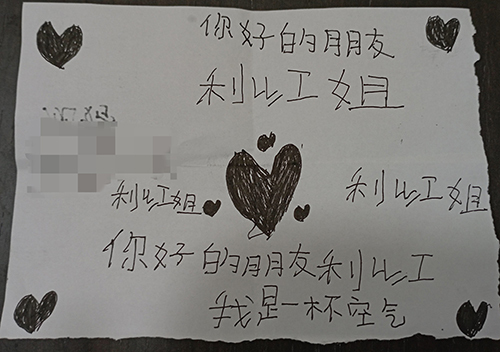 你好的朋友
利红姐
利红姐 利红姐
你好的朋友利红
我是一杯空气